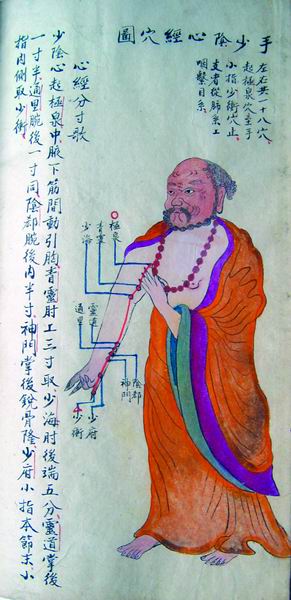 手少陰心經穴圖
左右共一十八穴
起極泉穴至手
小指少衝穴止
支者從肺系工
咽繫目系
心經分寸歌
少陰心起極泉中腋下筋間動引胸青靈肘工三寸取少海肘後端五分靈道掌後
一寸半通里腕後一寸同陰郄腕後內半寸神門掌後銳骨隆少府小指本節末小
指內側取少衝
極泉
青靈
少海
靈道
通里
陰郄
神門
少府
少衝